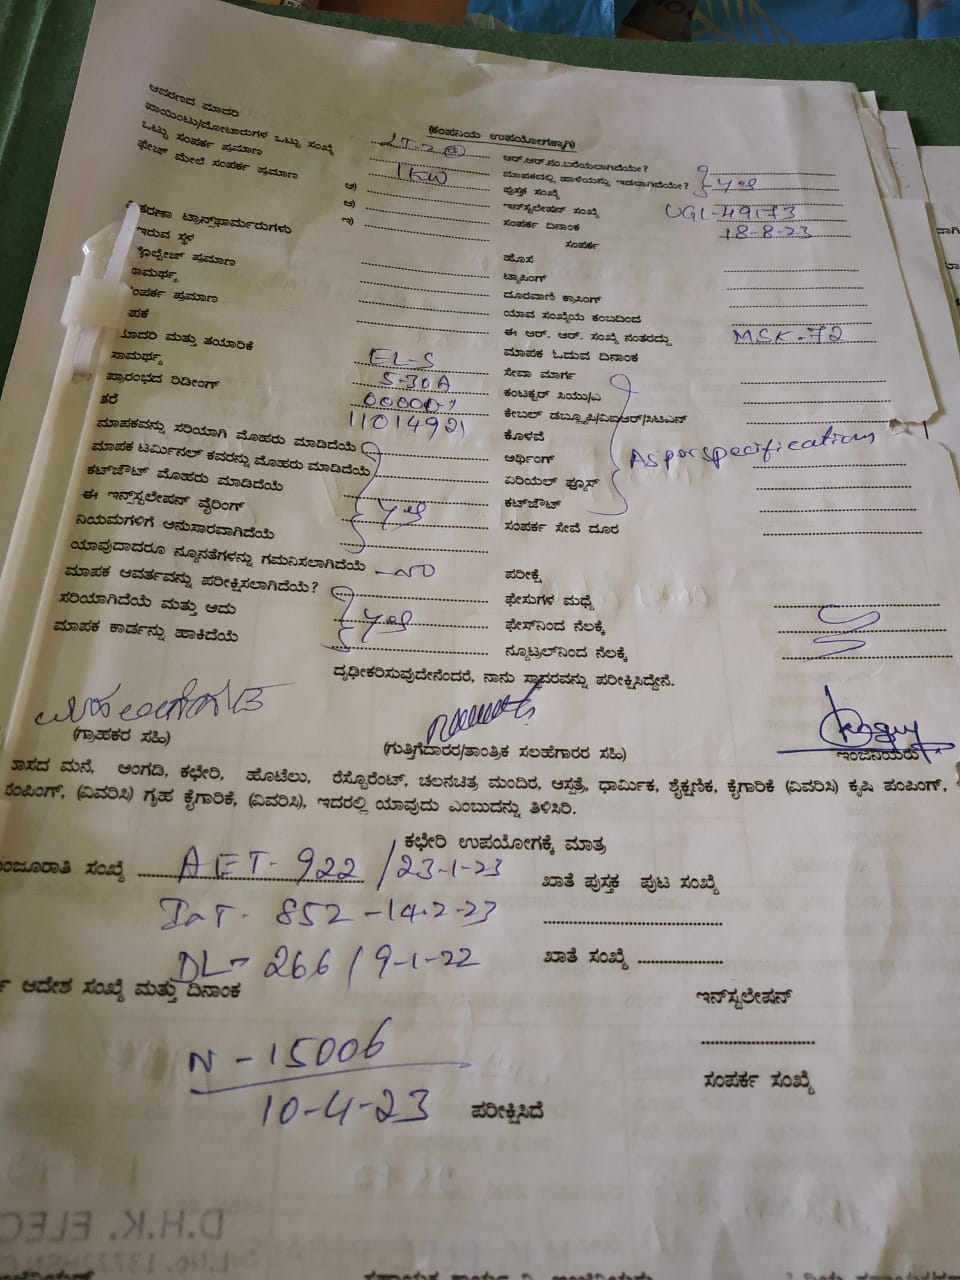 (ಕಂಪನಿಯ ಉಪಯೋಗಕ್ಕಾಗಿ)
ಆವರಣದ ಮಾದರಿ LT-2 ಆರ್.ಆರ್.ನಂ.ಬರೆಯಲಾಗಿದೆಯೇ?
ಪಾಯಿಂಟು/ಮೋಟಾರುಗಳ ಒಟ್ಟು ಸಂಖ್ಯೆ 1KW ಮಾಪಕದಲ್ಲಿ ಹಾಳೆಯನ್ನು ಇಡಲಾಗಿದೆಯೇ? yes
ಒಟ್ಟು ಸಂಪರ್ಕ ಪ್ರಮಾಣ ಪುಸ್ತಕ ಸಂಖ್ಯೆ
ಫೇಜ್ ಮೇಲೆ ಸಂಪರ್ಕ ಪ್ರಮಾಣ ಅ) ಇನ್‌ಸ್ಟಲೇಷನ್ ಸಂಖ್ಯೆ UGL-49173
ಆ) ಸಂಪರ್ಕ ದಿನಾಂಕ 18-8-23
ಕರಣಾ ಟ್ರಾನ್ಸ್‌ಫಾರ್ಮರುಗಳು ಇ) ಸಂಪರ್ಕ
ಇರುವ ಸ್ಥಳ ಹೊಸ
ವೋಲ್ಟೇಜ್ ಪ್ರಮಾಣ ಟ್ಯಾಪಿಂಗ್
ಸಾಮರ್ಥ್ಯ ದೂರವಾಣಿ ಕ್ರಾಸಿಂಗ್
ಸಂಪರ್ಕ ಪ್ರಮಾಣ ಯಾವ ಸಂಖ್ಯೆಯ ಕಂಬದಿಂದ
ಪಕ ಈ ಆರ್. ಆರ್. ಸಂಖ್ಯೆ ನಂತರದ್ದು MSK-72
ಮಾದರಿ ಮತ್ತು ತಯಾರಿಕೆ EL-S ಮಾಪಕ ಓದುವ ದಿನಾಂಕ
ಸಾಮರ್ಥ್ಯ 5-30A ಸೇವಾ ಮಾರ್ಗ
ಪ್ರಾರಂಭದ ರಿಡೀಂಗ್ ಕಂಟಕ್ಟರ್ ಸಿಯು/ಎ
ತರೆ 11014921 ಕೇಬಲ್ ಡಬ್ಲ್ಯೂಪಿ/ಎಐಆರ್/ಸಿಟಿಎನ್
ಮಾಪಕವನ್ನು ಸರಿಯಾಗಿ ಮೊಹರು ಮಾಡಿದೆಯೆ ಕೊಳವೆ
ಮಾಪಕ ಟರ್ಮಿನಲ್ ಕವರನ್ನು ಮೊಹರು ಮಾಡಿದೆಯೆ ಅರ್ಥಿಂಗ್ As per specification
ಕಟ್‌ಔಟ್ ಮೊಹರು ಮಾಡಿದೆಯೆ ಏರಿಯಲ್ ಫ್ಯೂಸ್
ಈ ಇನ್ಸ್‌ಸ್ಟಲೇಷನ್ ವೈರಿಂಗ್ yes ಕಟ್‌ಔಟ್
ನಿಯಮಗಳಿಗೆ ಅನುಸಾರವಾಗಿದೆಯೆ ಸಂಪರ್ಕ ಸೇವೆ ದೂರ
ಯಾವುದಾದರೂ ನ್ಯೂನತೆಗಳನ್ನು ಗಮನಿಸಲಾಗಿದೆಯೆ -NO ಪರೀಕ್ಷೆ
ಮಾಪಕ ಆವರ್ತವನ್ನು ಪರೀಕ್ಷಿಸಲಾಗಿದೆಯೆ? ಫೇಸುಗಳ ಮಧ್ಯೆ
ಸರಿಯಾಗಿದೆಯೆ ಮತ್ತು ಅದು yes ಫೇಸ್‌ನಿಂದ ನೆಲಕ್ಕೆ
ಮಾಪಕ ಕಾರ್ಡನ್ನು ಹಾಕಿದೆಯೆ ನ್ಯೂಟ್ರಲ್‌ನಿಂದ ನೆಲಕ್ಕೆ
ದೃಢೀಕರಿಸುವುದೇನೆಂದರೆ, ನಾನು ಸ್ಥಾವರವನ್ನು ಪರೀಕ್ಷಿಸಿದ್ದೇನೆ.
(ಗ್ರಾಹಕರ ಸಹಿ) (ಗುತ್ತಿಗೆದಾರರ/ತಾಂತ್ರಿಕ ಸಲಹೆಗಾರರ ಸಹಿ) ಇಂಜಿನಿಯರು
ವಾಸದ ಮನೆ, ಅಂಗಡಿ, ಕಛೇರಿ, ಹೊಟೆಲು, ರೆಸ್ಟೊರೆಂಟ್, ಚಲನಚಿತ್ರ ಮಂದಿರ, ಆಸ್ಪತ್ರೆ, ಧಾರ್ಮಿಕ, ಶೈಕ್ಷಣಿಕ, ಕೈಗಾರಿಕೆ (ವಿವರಿಸಿ) ಕೃಷಿ ಪಂಪಿಂಗ್,
ಪಂಪಿಂಗ್, (ವಿವರಿಸಿ) ಗೃಹ ಕೈಗಾರಿಕೆ, (ವಿವರಿಸಿ), ಇದರಲ್ಲಿ ಯಾವುದು ಎಂಬುದನ್ನು ತಿಳಿಸಿರಿ.
ಕಛೇರಿ ಉಪಯೋಗಕ್ಕೆ ಮಾತ್ರ
ಮಂಜೂರಾತಿ ಸಂಖ್ಯೆ AET-922/23-1-23 ಖಾತೆ ಪುಸ್ತಕ ಪುಟ ಸಂಖ್ಯೆ
852-14-2-23
DL-266/9-1-22 ಖಾತೆ ಸಂಖ್ಯೆ
ಆದೇಶ ಸಂಖ್ಯೆ ಮತ್ತು ದಿನಾಂಕ ಇನ್‌ಸ್ಟಲೇಷನ್
N-15006
10-4-23 ಪರೀಕ್ಷಿಸಿದೆ ಸಂಪರ್ಕ ಸಂಖ್ಯೆ
D.H.K. ELEC